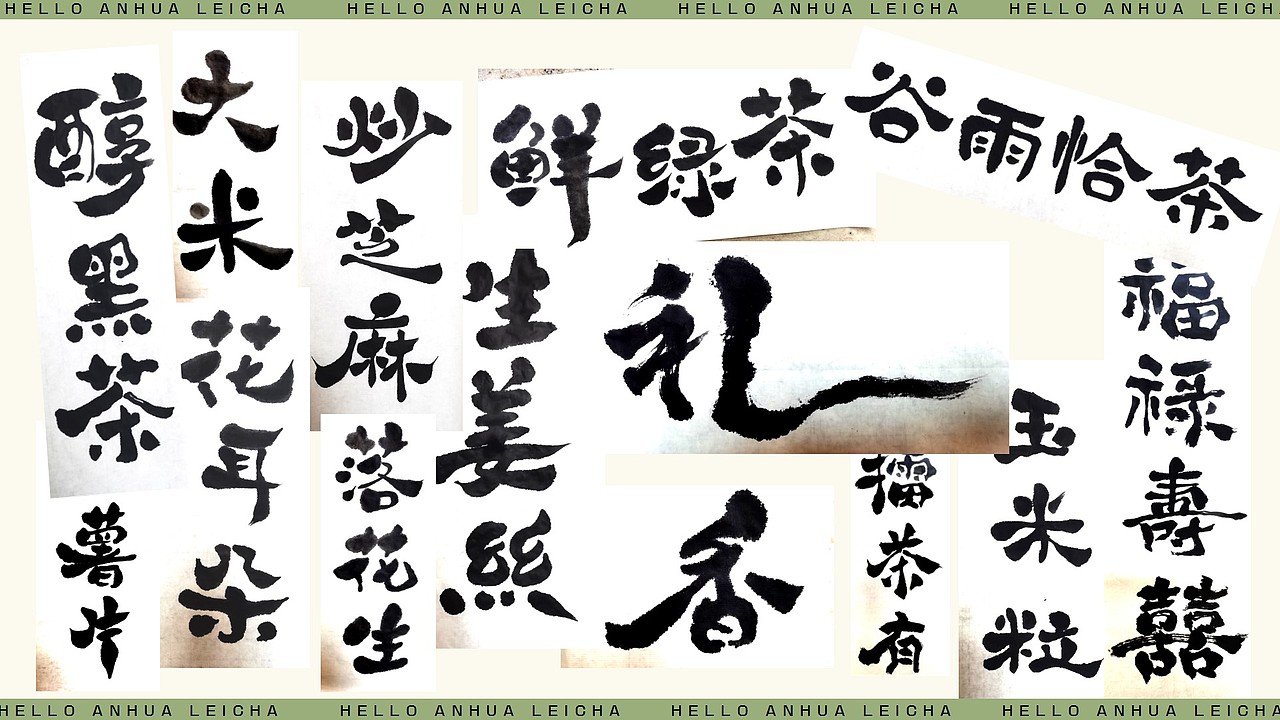 HELLO ANHUA LEICHA HELLO ANHUA LEICHA HELLO ANHUA LEICHA HELLO ANHUA LEICHA
醇黑茶
薯片
大米
花耳朵
炒芝麻
落花生
鲜绿茶
生姜丝
谷雨恰茶
礼
香
擂茶有
玉米粒
福禄寿囍
HELLO ANHUA LEICHA HELLO ANHUA LEICHA HELLO ANHUA LEICHA HELLO ANHUA LEICHA